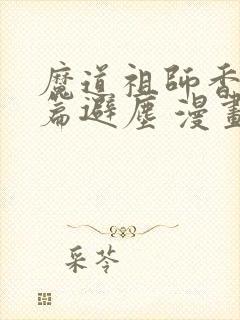 魔道祖師香
篇避塵 漫畫
采苓